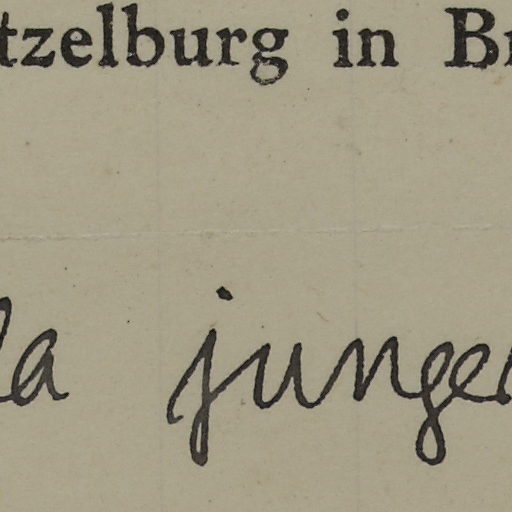 tzelburg in Br
la junge